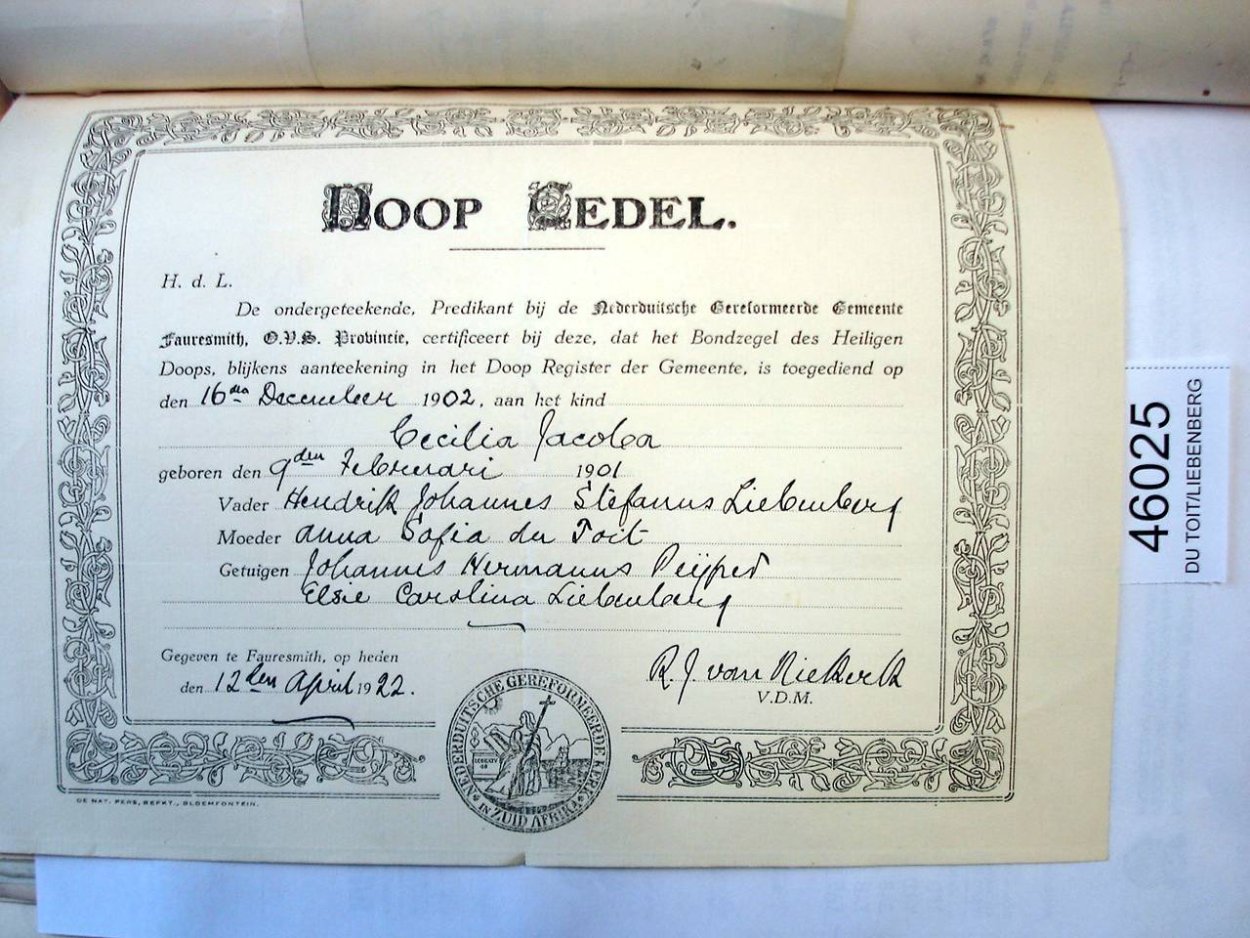 DOOP CEDEL.
H. d. L.
De ondergeteekende, Predikant bij de Nederduitsche Gereformeerde Gemeente
Fauresmith, O.V.S. Provincie, certificeert bij deze, dat het Bondzegel des Heiligen
Doops, blijkens aanteekening in het Doop Register der Gemeente, is toegediend op
den 16den December 1902, aan het kind
Cecilia Jacoba
geboren den 9den Februari 1901
Vader Hendrik Johannes Stefanus Liebenberg
Moeder Anna Sofia du Toit
Getuigen Johannes Hermanus
Elsie Carolina Liebenberg
Gegeven te Fauresmith, op heden
den 12den April 1922.
R. J. van Niekerk
V.D.M.
NEDERDUITSCHE GEREFORMEERDE KERK
IN ZUID AFRIKA
DE NAT. PERS, BEPKT., BLOEMFONTEIN.
46025
DU TOIT/LIEBENBERG